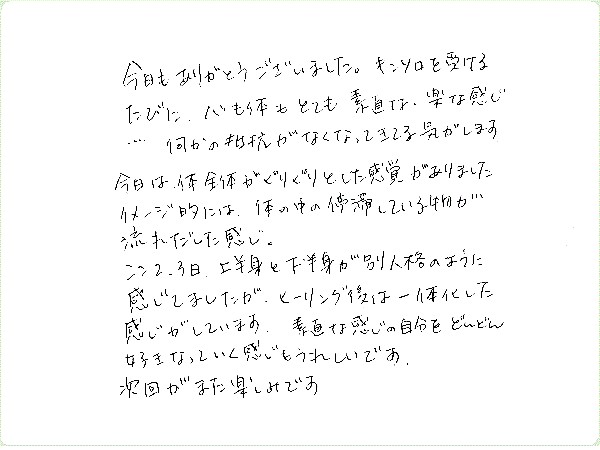 今日もありがとうございました。キンソロを受ける
たびに、心も体もとても素直な、楽な感じ
… 何かの抵抗がなくなってきてる気がします
今日は、体全体がぐりぐりとした感覚がありました
イメージ的には、体の中の停滞している物が
流れだした感じ。
ここ2、3日、上半身と下半身が別人格のように
感じてましたが、ヒーリング後は一体化した
感じがしています。素直な感じの自分をどんどん
好きなっていく感じもうれしいです。
次回がまた楽しみです